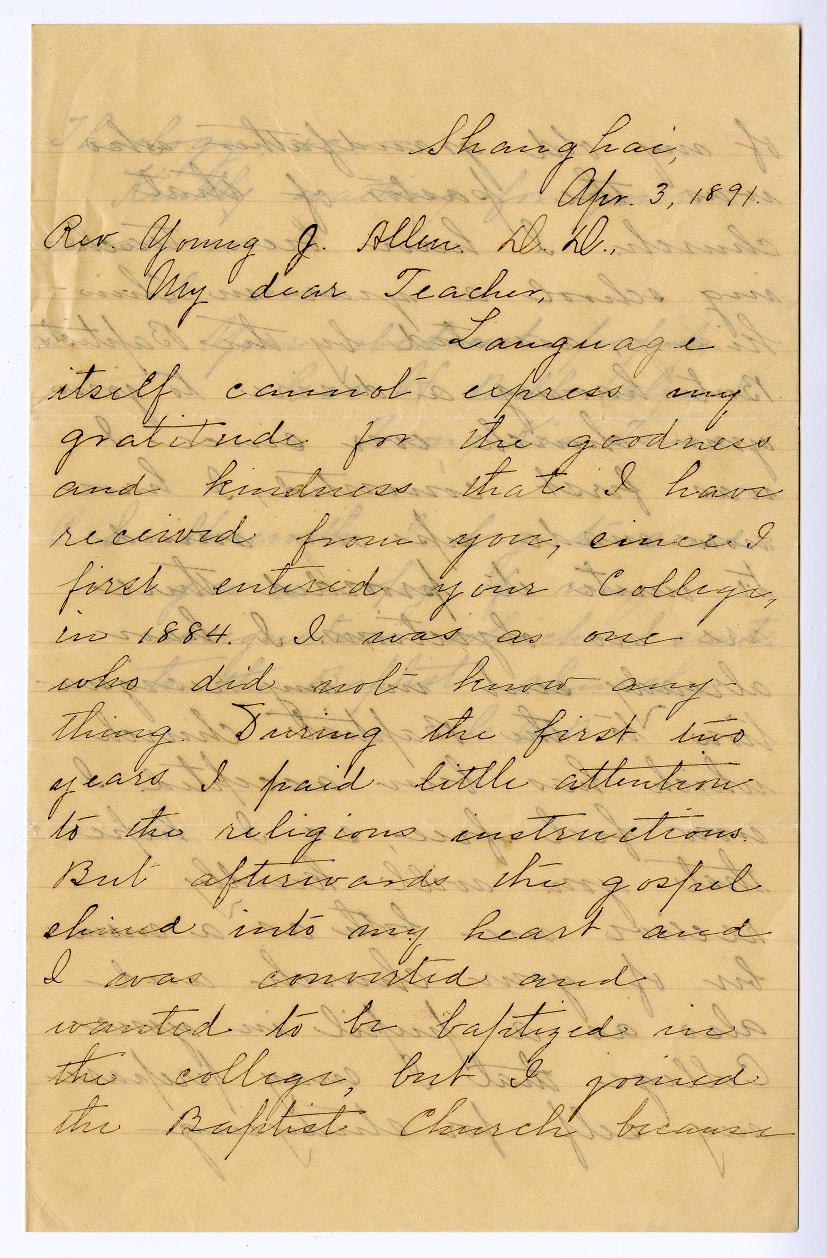 Shanghai,
Apr. 3, 1891.
Rev. Young J. Allen. D. D.,
My dear Teacher,
Language
itself cannot express my
gratitude for the goodness
and kindness that I have
received from you, since I
first entered your College,
in 1884. I was as one
who did not know any-
thing. During the first two
years I paid little attention
to the religious instructions.
But afterwards the gospel
shined into my heart and
I was converted and
wanted to be baptized in
the college, but I joined
the Baptist Church because